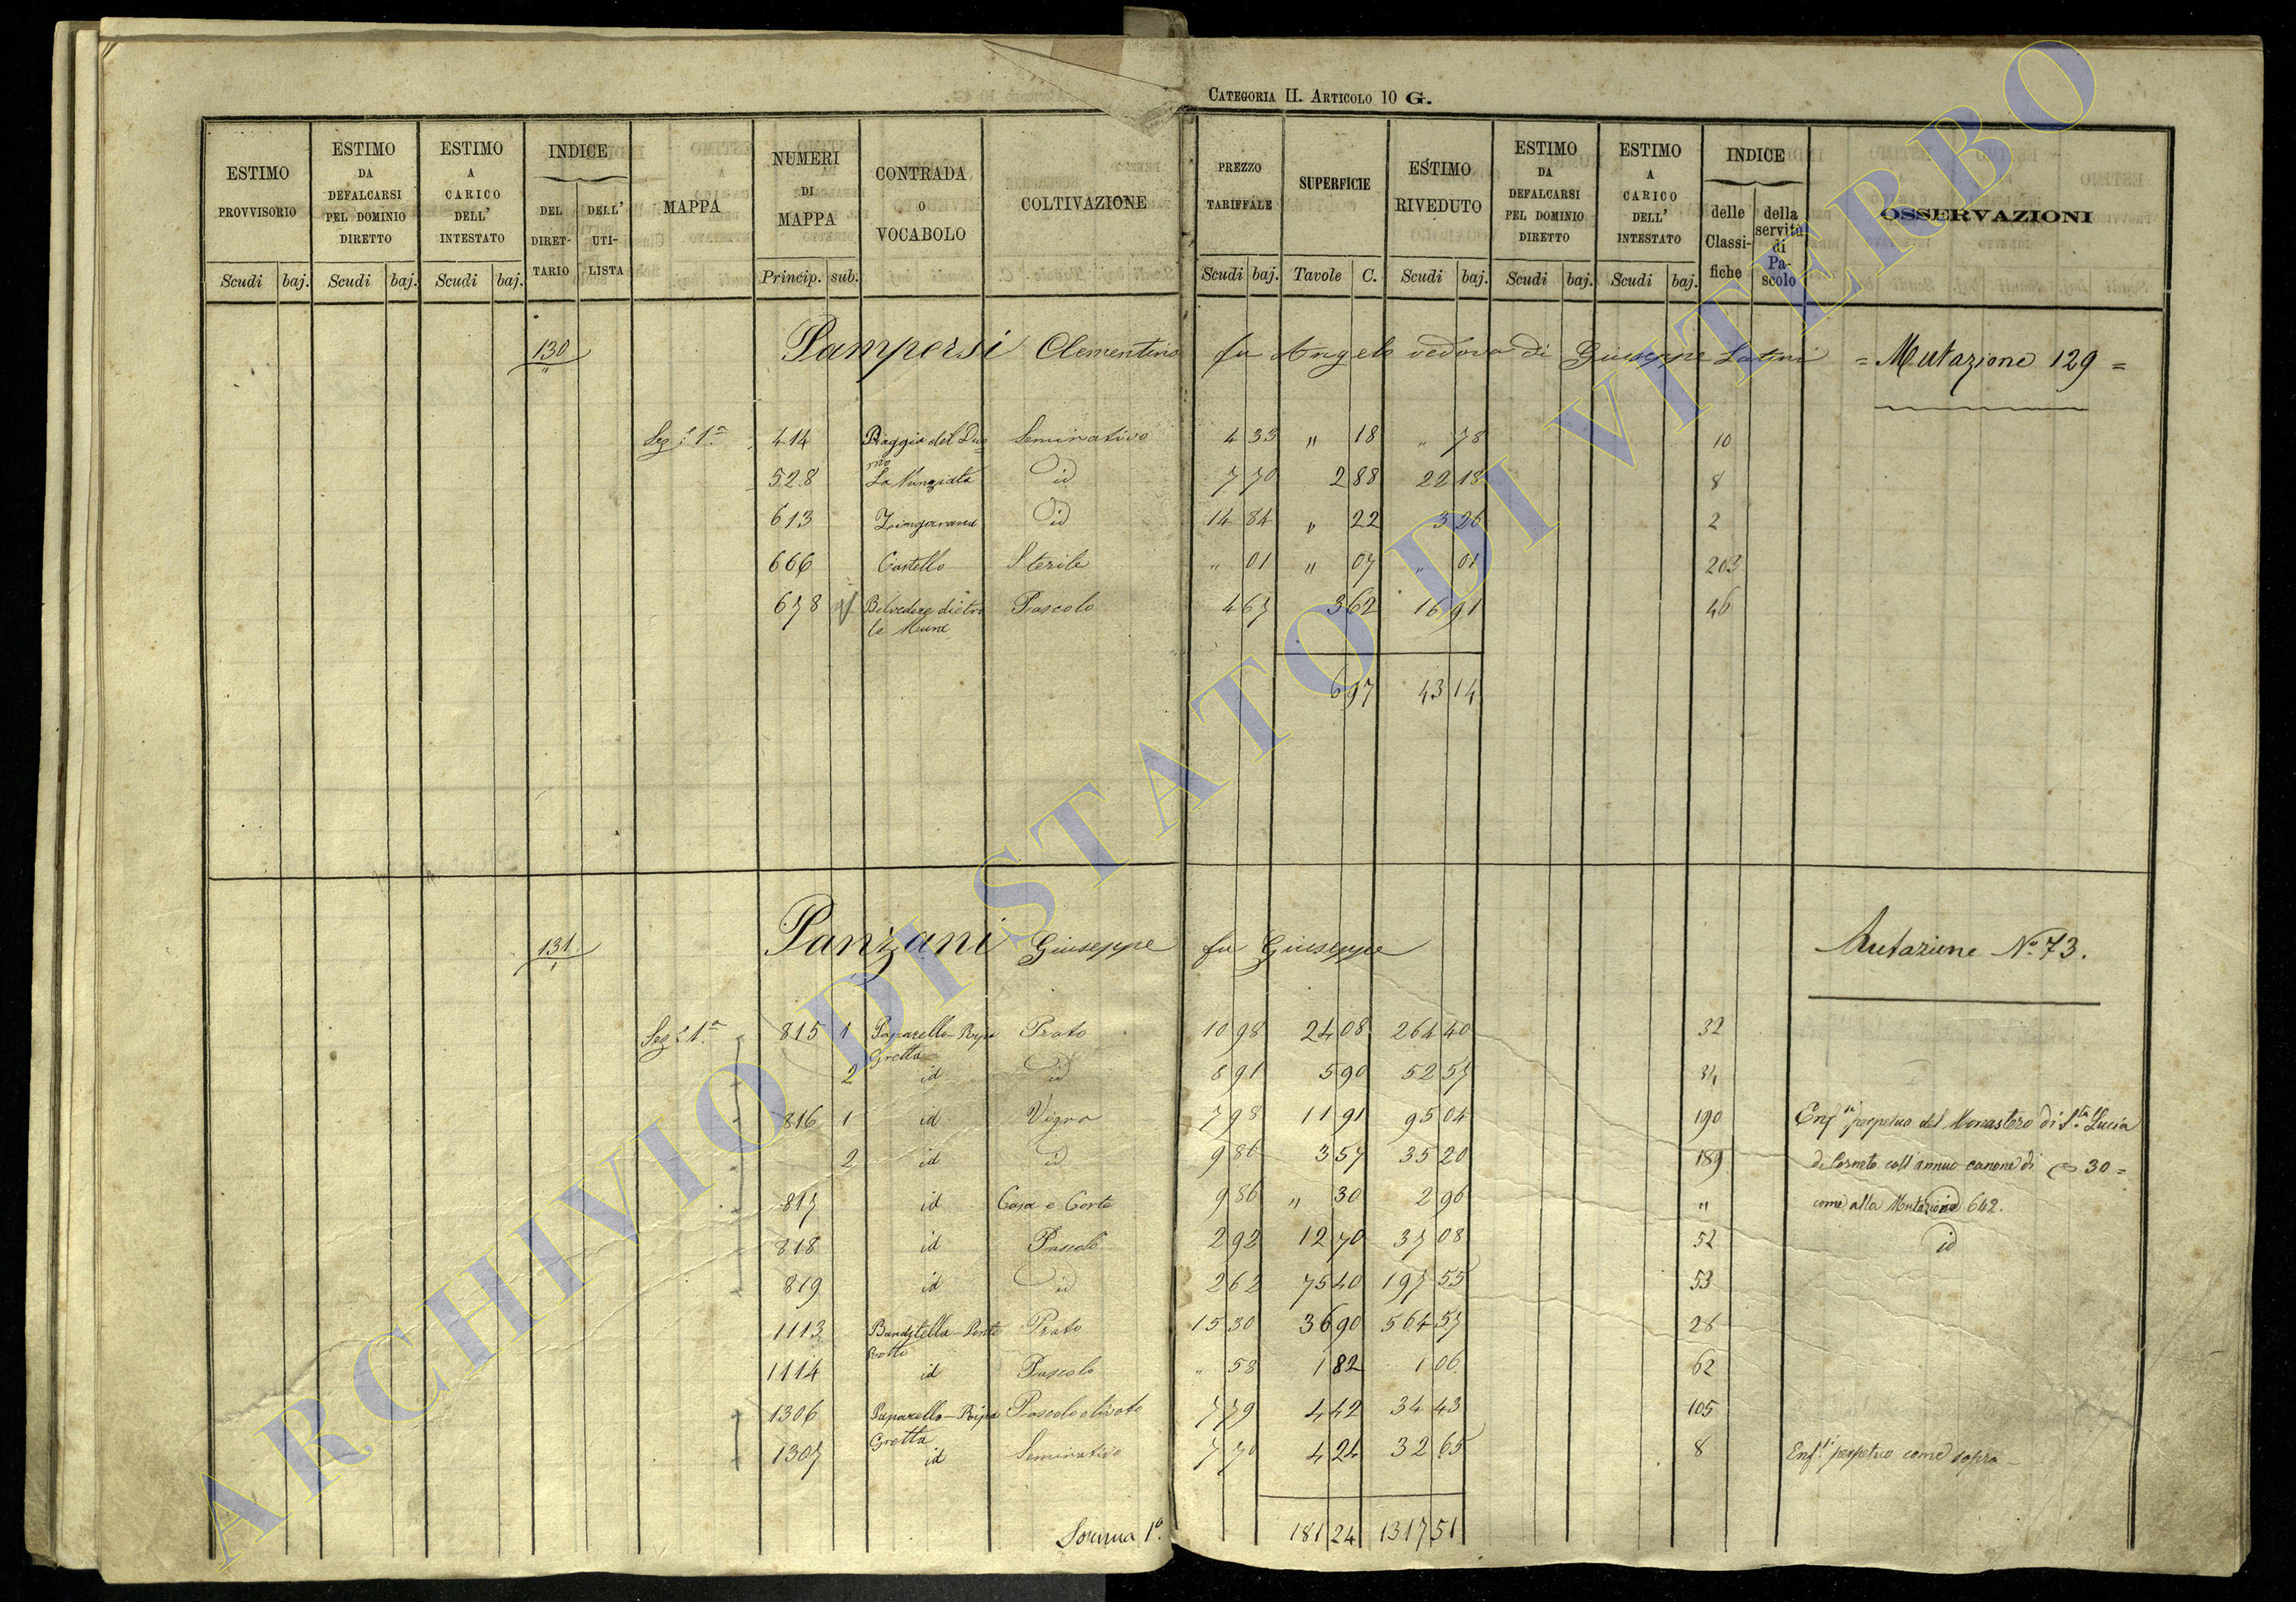 CATEGORIA II. ARTICOLO 10 G.
ESTIMO PROVVISORIO Scudi baj. | ESTIMO DA DEFALCARSI PEL DOMINIO DIRETTO Scudi baj. | ESTIMO A CARICO DELL' INTESTATO Scudi baj. | INDICE DEL DIRET- TARIO | DELL' UTI- LISTA | MAPPA | NUMERI DI MAPPA Princip. sub. | CONTRADA O VOCABOLO | COLTIVAZIONE | PREZZO TARIFFALE Scudi baj. | SUPERFICIE Tavole C. | ESTIMO RIVEDUTO Scudi baj. | ESTIMO DA DEFALCARSI PEL DOMINIO DIRETTO Scudi baj. | ESTIMO A CARICO DELL' INTESTATO Scudi baj. | INDICE delle Classi- fiche | della servitù di Pa- scolo | OSSERVAZIONI
130 Pampersi Clementina fu Angelo vedova di Giuseppe Latini = Mutazione 129 =
Sez.e 1.a 414 Piaggia del Duo= Seminativo 4 33 " 18 " 78 10
mo
528 La Nunziata id 7 70 2 88 22 18 8
613 Zingarara id 14 84 " 22 3 26 2
666 Castello Sterile " 01 " 07 " 01 203
678 Belvedere dietro Pascolo 4 67 3 62 16 91 46
le Mura
6 97 43 14
131. Panzani Giuseppe fu Giuseppe Mutazione N.o 73.
Sez.e 1.a 815 1 Paparello-Ripa Prato 10 98 24 08 264 40 32
Gretta
2 id id 8 91 5 90 52 57 34
816 1 id Vigna 7 98 11 91 95 04 190 Enf.si perpetuo del Monastero di S.ta Lucia
2 id id 9 86 3 57 35 20 189 di Corneto coll'annuo canone di 30=
817 id Casa e Corte 9 86 " 30 2 96 " come alla Mutazione 642.
818 id Pascolo 2 92 12 70 37 08 52 id
819 id id 2 62 75 40 197 55 53
1113 Banditella-Ponte Prato 15 30 36 90 564 57 28
Rotto
1114 id Pascolo " 58 1 82 1 06 62
1306 Paparello-Ripa Pascolo olivato 7 79 4 42 34 43 105
Gretta
1307 id Seminativo 7 70 4 24 32 65 8 Enf.si perpetuo come sopra
Somma 1.a 181 24 1317 51
ARCHIVIO DI STATO DI VITERBO